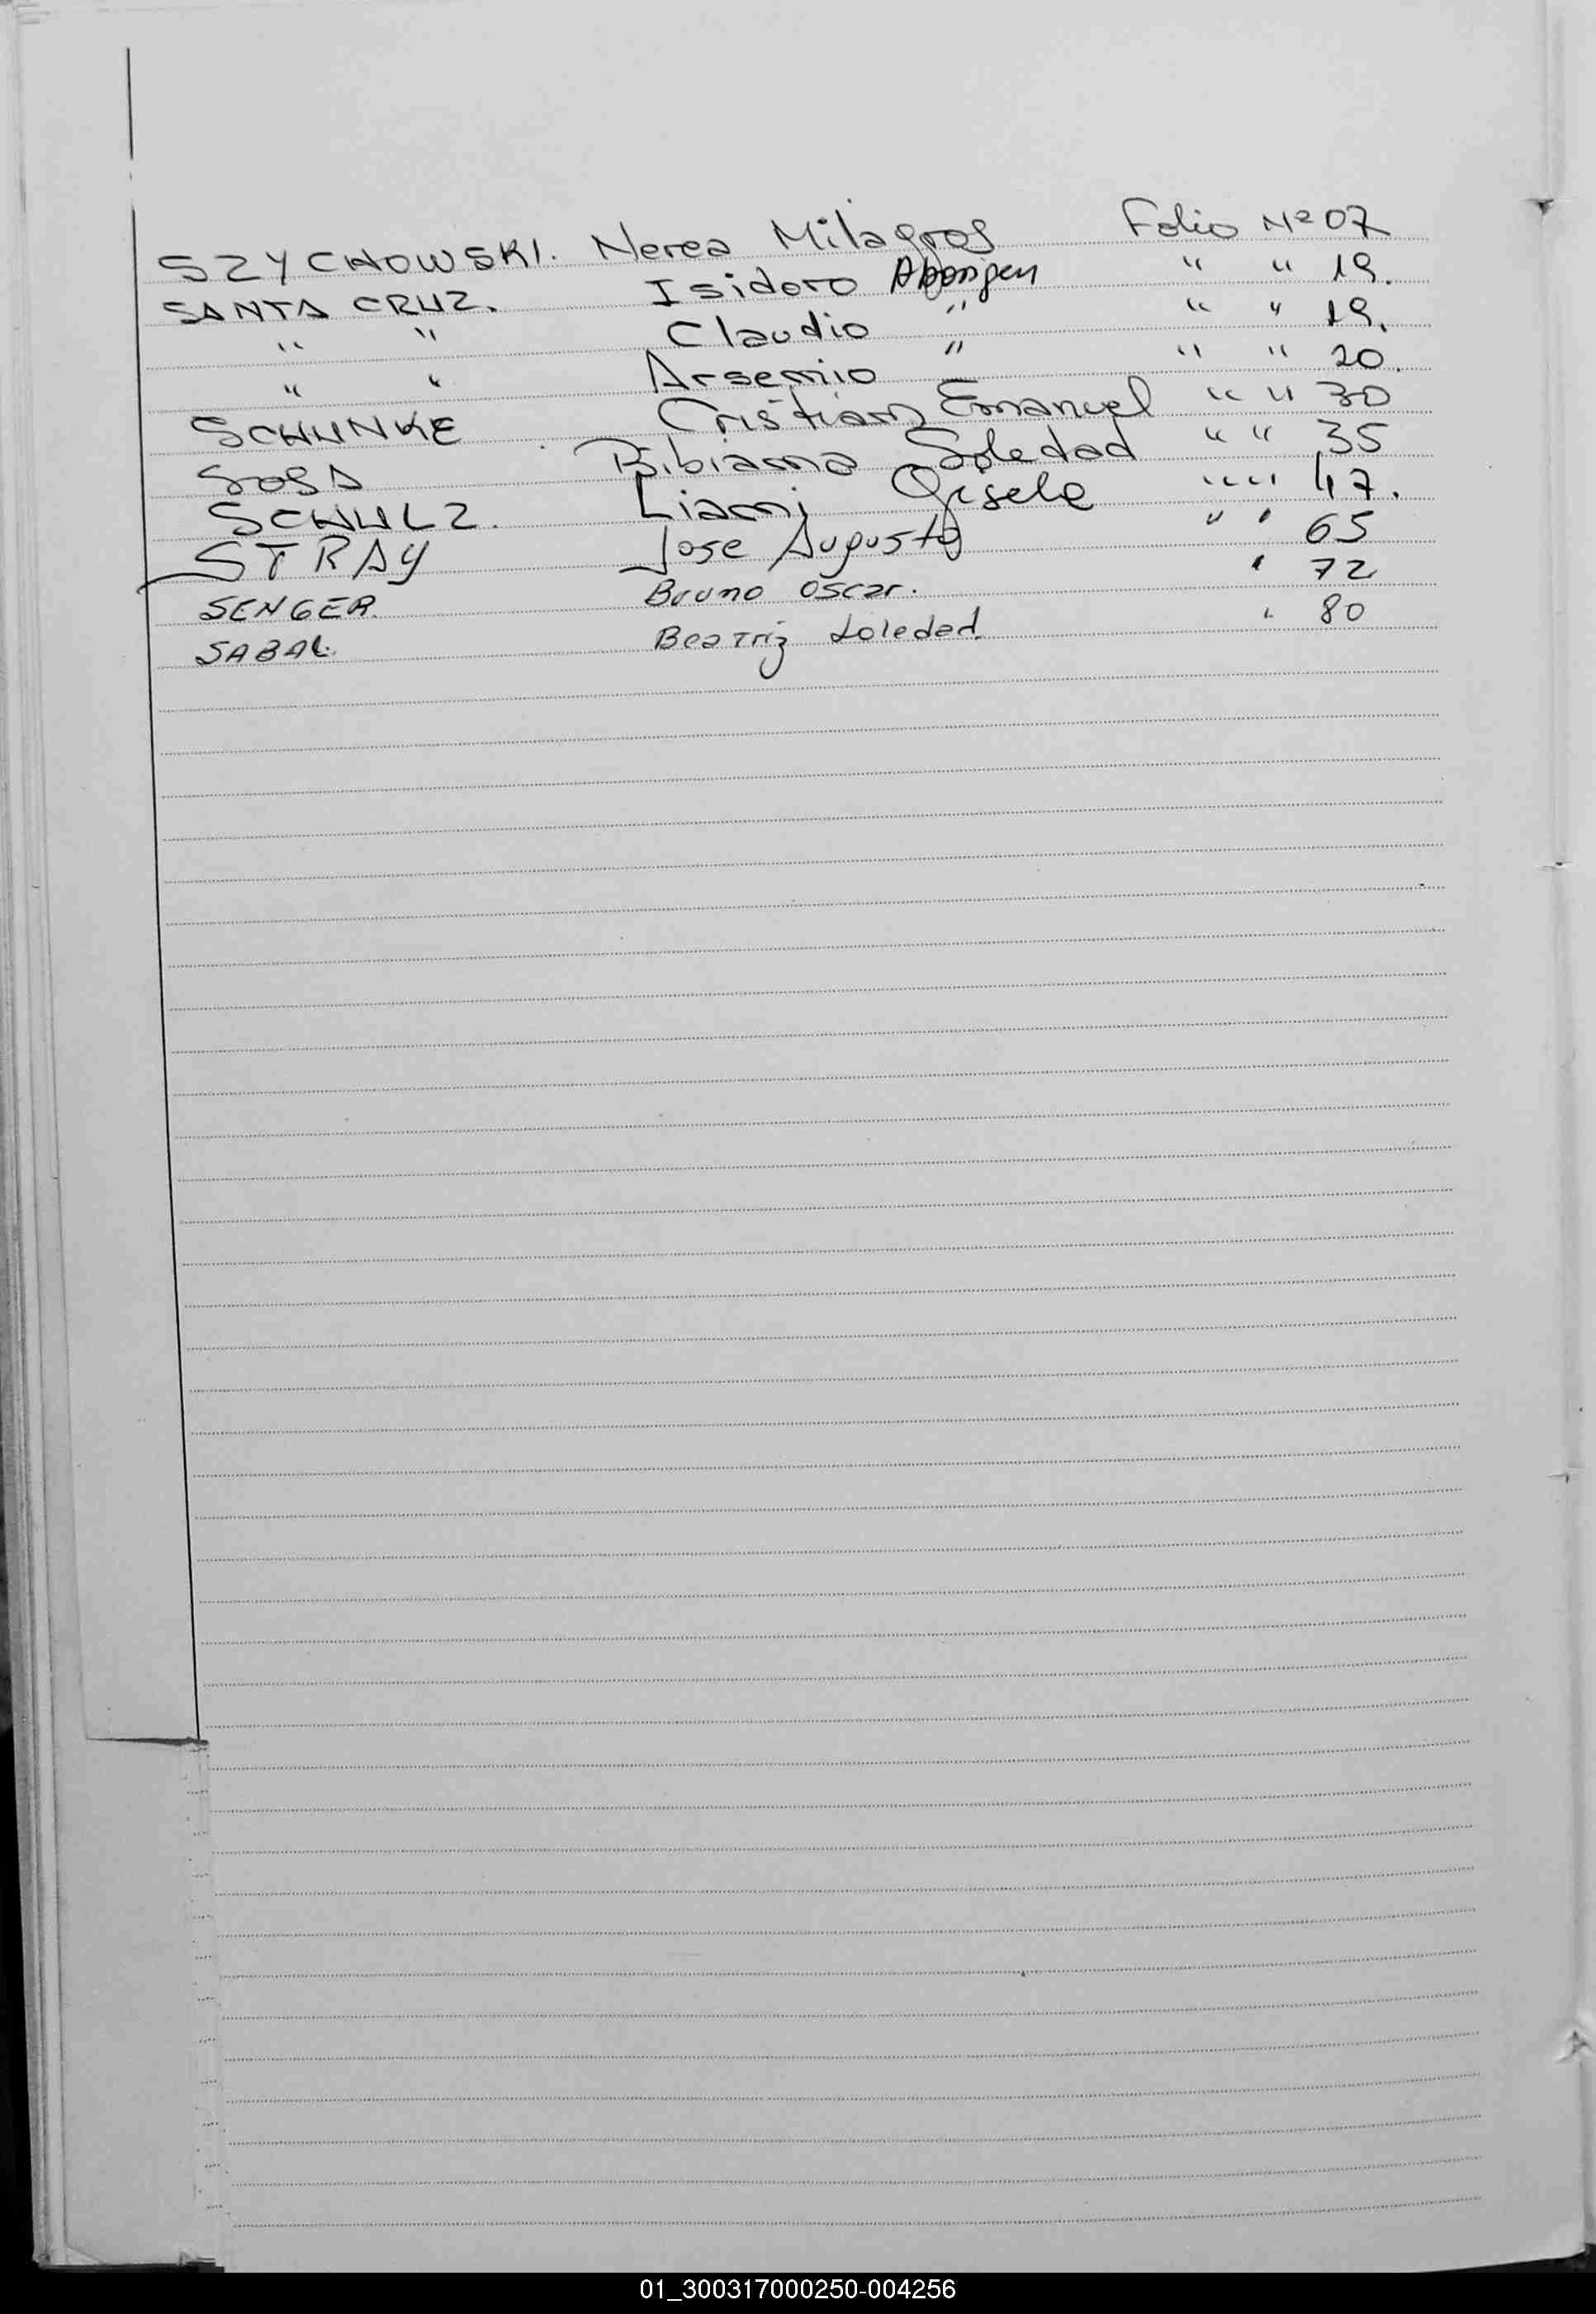 SZYCHOWSKI. Nerea Milagros Folio Nº 07
SANTA CRUZ. Isidoro Aborigen " " 19.
" " Claudio " " " 19.
" " Arsenio " " " 20.
SCHUNKE Cristian Emanuel " " 30
SOSA Bibiana Soledad " " 35
SCHULZ. Liani Gisele " " 47.
STRAY Jose Augusto " " 65
SENGER. Bruno Oscar. " 72
SABAL. Beatriz Soledad. " 80
01_300317000250-004256